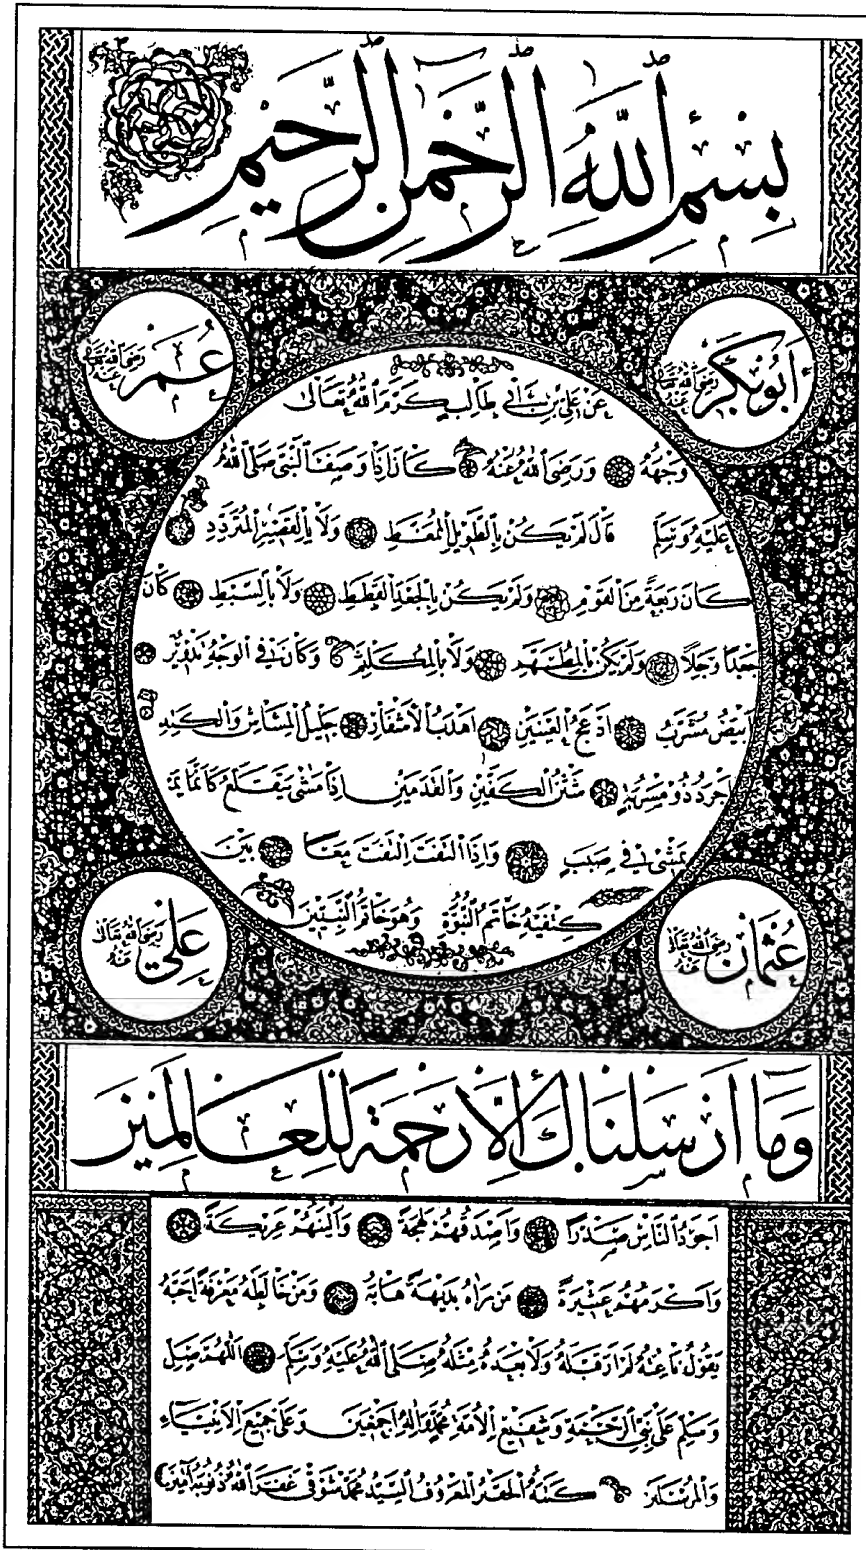 بِسْمِ اللهِ الرَّحْمٰنِ الرَّحِيمِ
اَبُو بَكْرٍ رَضِيَ اللهُ تَعَالٰى عَنْهُ
عُمَرْ رَضِيَ اللهُ تَعَالٰى عَنْهُ
عَنْ عَلِيِّ بْنِ اَبِي طَالِبٍ كَرَّمَ اللهُ تَعَالٰى
وَجْهَهُ وَرَضِيَ اللهُ عَنْهُ كَانَ اِذَا وَصَفَ النَّبِيَّ صَلَّى اللهُ
عَلَيْهِ وَسَلَّمَ قَالَ لَمْ يَكُنْ بِالطَّوِيلِ الْمُمَغَّطِ وَلَا بِالْقَصِيرِ الْمُتَرَدِّدِ
كَانَ رَبْعَةً مِنَ الْقَوْمِ وَلَمْ يَكُنْ بِالْجَعْدِ الْقَطَطِ وَلَا بِالسَّبْطِ كَانَ
جَعْدًا رَجِلًا وَلَمْ يَكُنْ بِالْمُطَهَّمِ وَلَا بِالْمُكَلْثَمِ وَكَانَ فِي الْوَجْهِ تَدْوِيرٌ
اَبْيَضُ مُشْرَبٌ اَدْعَجُ الْعَيْنَيْنِ اَهْدَبُ الْاَشْفَارِ جَلِيلُ الْمُشَاشِ وَالْكَتَدِ
اَجْرَدُ ذُو مَسْرُبَةٍ شَثْنُ الْكَفَّيْنِ وَالْقَدَمَيْنِ اِذَا مَشٰى يَتَقَلَّعُ كَاَنَّمَا
يَمْشِي فِي صَبَبٍ وَاِذَا الْتَفَتَ اِلْتَفَتَ مَعًا بَيْنَ
كَتِفَيْهِ خَاتَمُ النُّبُوَّةِ وَهُوَ خَاتَمُ النَّبِيِّينَ
عُثْمَانْ رَضِيَ اللهُ تَعَالٰى عَنْهُ
عَلِي رَضِيَ اللهُ تَعَالٰى عَنْهُ
وَمَا اَرْسَلْنَاكَ اِلَّا رَحْمَةً لِلْعَالَمِينَ
اَجْوَدُ النَّاسِ صَدْرًا وَاَصْدَقُهُمْ لَهْجَةً وَاَلْيَنُهُمْ عَرِيكَةً
وَاَكْرَمُهُمْ عَشِيرَةً مَنْ رَاٰهُ بَدِيهَةً هَابَهُ وَمَنْ خَالَطَهُ مَعْرِفَةً اَحَبَّهُ
يَقُولُ نَاعِتُهُ لَمْ اَرَ قَبْلَهُ وَلَا بَعْدَهُ مِثْلَهُ صَلَّى اللهُ عَلَيْهِ وَسَلَّمَ اَللّٰهُمَّ صَلِّ
وَسَلِّمْ عَلٰى نَبِيِّ الرَّحْمَةِ وَشَفِيعِ الْاُمَّةِ مُحَمَّدٍ وَاٰلِهِ اَجْمَعِينَ وَعَلٰى جَمِيعِ الْاَنْبِيَاءِ
وَالْمُرْسَلِينَ كَتَبَهُ الْحَقِيرُ الْمَعْرُوفُ السَّيِّدُ مُحَمَّدْ شَوْقِي غَفَرَ اللهُ ذُنُوبَهُ اٰمِينَ